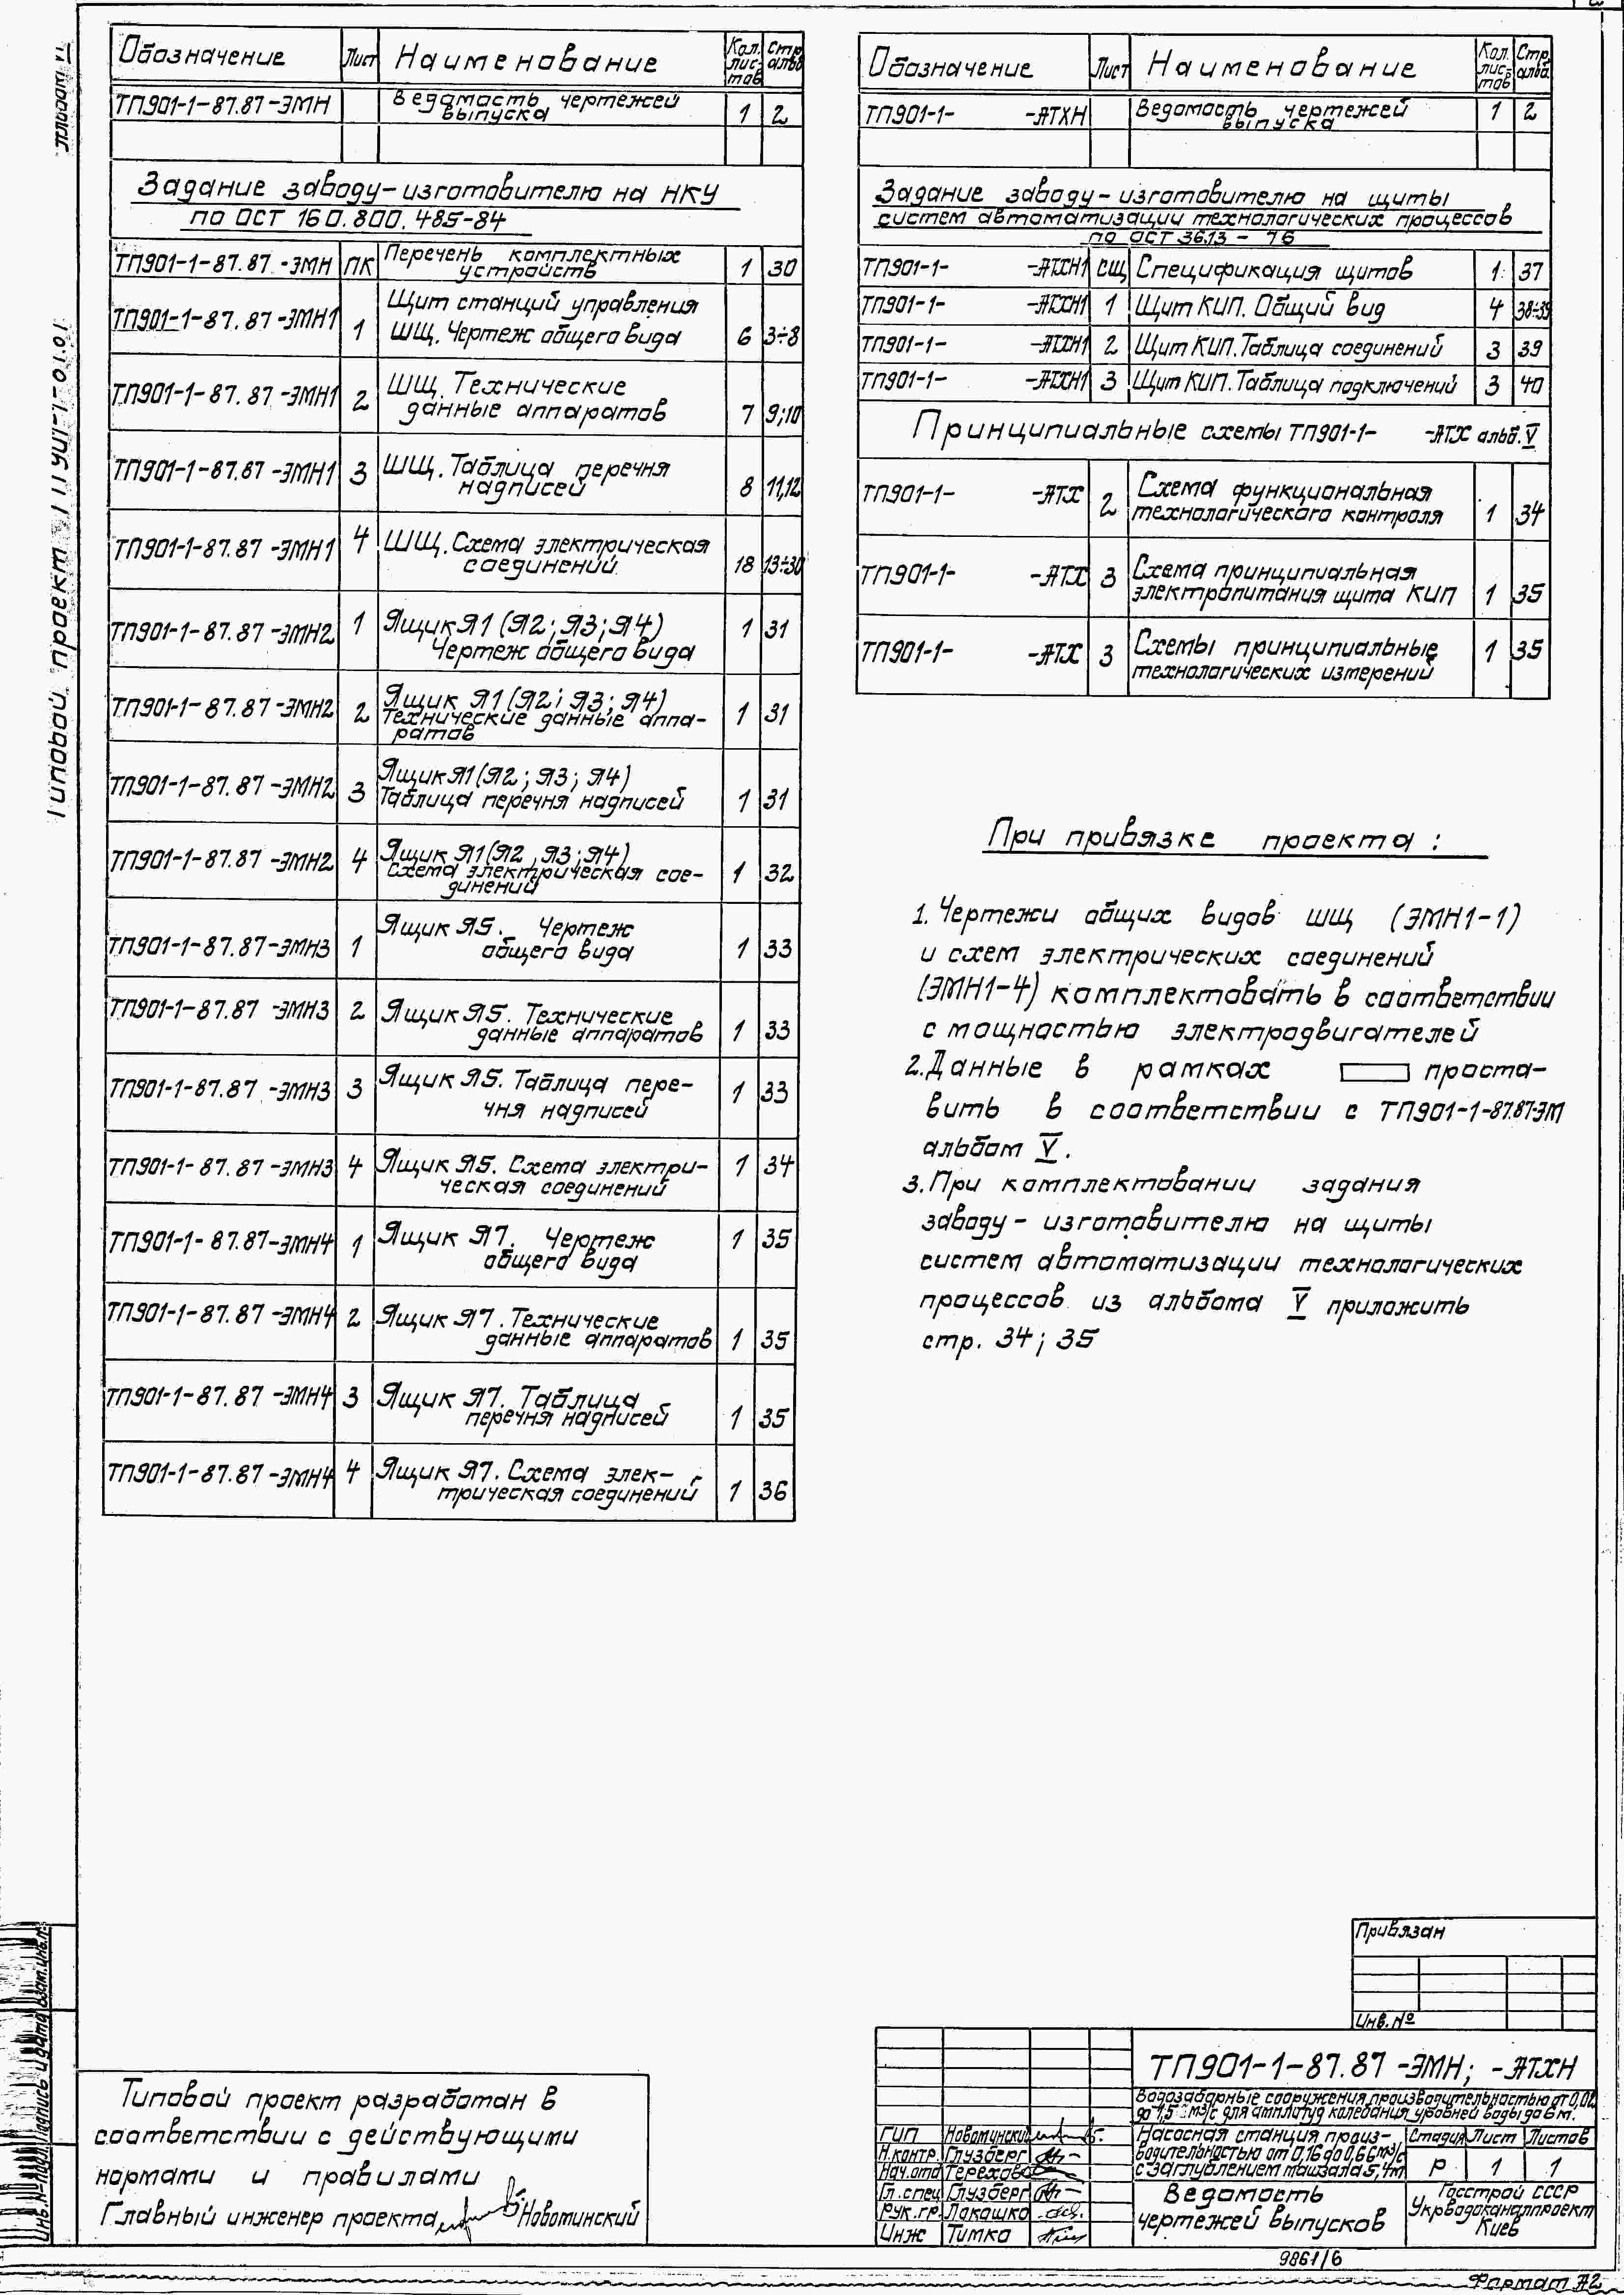 Обозначение Лист Наименование Кол. лис-тов Стр. альб.
ТП901-1-87.87-ЭМН Ведамасть чертежей выпуска 1 2
Задание заводу-изготовителю на НКУ
по ОСТ 160.800.485-84
ТП901-1-87.87-ЭМН ПК Перечень комплектных устройств 1 30
ТП901-1-87.87-ЭМН1 1 Щит станций управления ШЩ. Чертеж общего вида 6 3÷8
ТП901-1-87.87-ЭМН1 2 ШЩ. Технические данные аппаратов 7 9;10
ТП901-1-87.87-ЭМН1 3 ШЩ. Таблица перечня надписей 8 11,12
ТП901-1-87.87-ЭМН1 4 ШЩ. Схема электрическая соединений 18 13÷30
ТП901-1-87.87-ЭМН2 1 Ящик Я1 (Я2; Я3; Я4) Чертеж общего вида 1 31
ТП901-1-87.87-ЭМН2 2 Ящик Я1 (Я2; Я3; Я4) Технические данные аппа-ратов 1 31
ТП901-1-87.87-ЭМН2 3 Ящик Я1 (Я2; Я3; Я4) Таблица перечня надписей 1 31
ТП901-1-87.87-ЭМН2 4 Ящик Я1 (Я2, Я3; Я4) Схема электрическая сое-динений 1 32
ТП901-1-87.87-ЭМН3 1 Ящик Я5. Чертеж общего вида 1 33
ТП901-1-87.87-ЭМН3 2 Ящик Я5. Технические данные аппаратов 1 33
ТП901-1-87.87-ЭМН3 3 Ящик Я5. Таблица пере-чня надписей 1 33
ТП901-1-87.87-ЭМН3 4 Ящик Я5. Схема электри-ческая соединений 1 34
ТП901-1-87.87-ЭМН4 1 Ящик Я7. Чертеж общего вида 1 35
ТП901-1-87.87-ЭМН4 2 Ящик Я7. Технические данные аппаратов 1 35
ТП901-1-87.87-ЭМН4 3 Ящик Я7. Таблица перечня надписей 1 35
ТП901-1-87.87-ЭМН4 4 Ящик Я7. Схема элек-трическая соединений 1 36
Обозначение Лист Наименование Кол. лис-тов Стр. альб.
ТП901-1- -АТХН Ведомость чертежей выпуска 1 2
Задание заводу-изготовителю на щиты
систем автоматизации технологических процессов
по ОСТ 36.13-76
ТП901-1- -АТХН1 СЩ Спецификация щитов 1 37
ТП901-1- -АТХН1 1 Щит КИП. Общий вид 4 38÷39
ТП901-1- -АТХН1 2 Щит КИП. Таблица соединений 3 39
ТП901-1- -АТХН1 3 Щит КИП. Таблица подключений 3 40
Принципиальные схемы ТП901-1- -АТХ альб. V
ТП901-1- -АТХ 2 Схема функциональная технологического контроля 1 34
ТП901-1- -АТХ 3 Схема принципиальная электропитания щита КИП 1 35
ТП901-1- -АТХ 3 Схемы принципиальные технологических измерений 1 35
При привязке проекта:
1. Чертежи общих видов ШЩ (ЭМН1-1)
и схем электрических соединений
(ЭМН1-4) комплектовать в соответствии
с мощностью электродвигателей
2. Данные в рамках проста-
вить в соответствии с ТП901-1-87.87-ЭМ
альбом V.
3. При комплектовании задания
заводу-изготовителю на щиты
систем автоматизации технологических
процессов из альбома V приложить
стр. 34; 35
Типовой проект
Типовой проект разработан в
соответствии с действующими
нормами и правилами
Главный инженер проекта Новоминский
Привязан
Инв. №
ТП901-1-87.87-ЭМН; -АТХН
Водозаборные сооружения производительностью от 0,02
до 1,5 м3/с для амплитуд колебания уровней воды до 6 м.
ГИП Новоминский
Н.контр. Глузберг
Нач.отд Терехова
Гл.спец Глузберг
Рук.гр. Лакашко
Инж Тимко
Насосная станция произ-
водительностью от 0,16 до 0,66 м3/с
с заглублением машзала 5,4м
Стадия Лист Листов
Р 1 1
Ведомость
чертежей выпусков
Госстрой СССР
Укрводоканалпроект
Киев
9861/6
Формат А2
Инв.№ подл. Подпись и дата Взам.инв.№